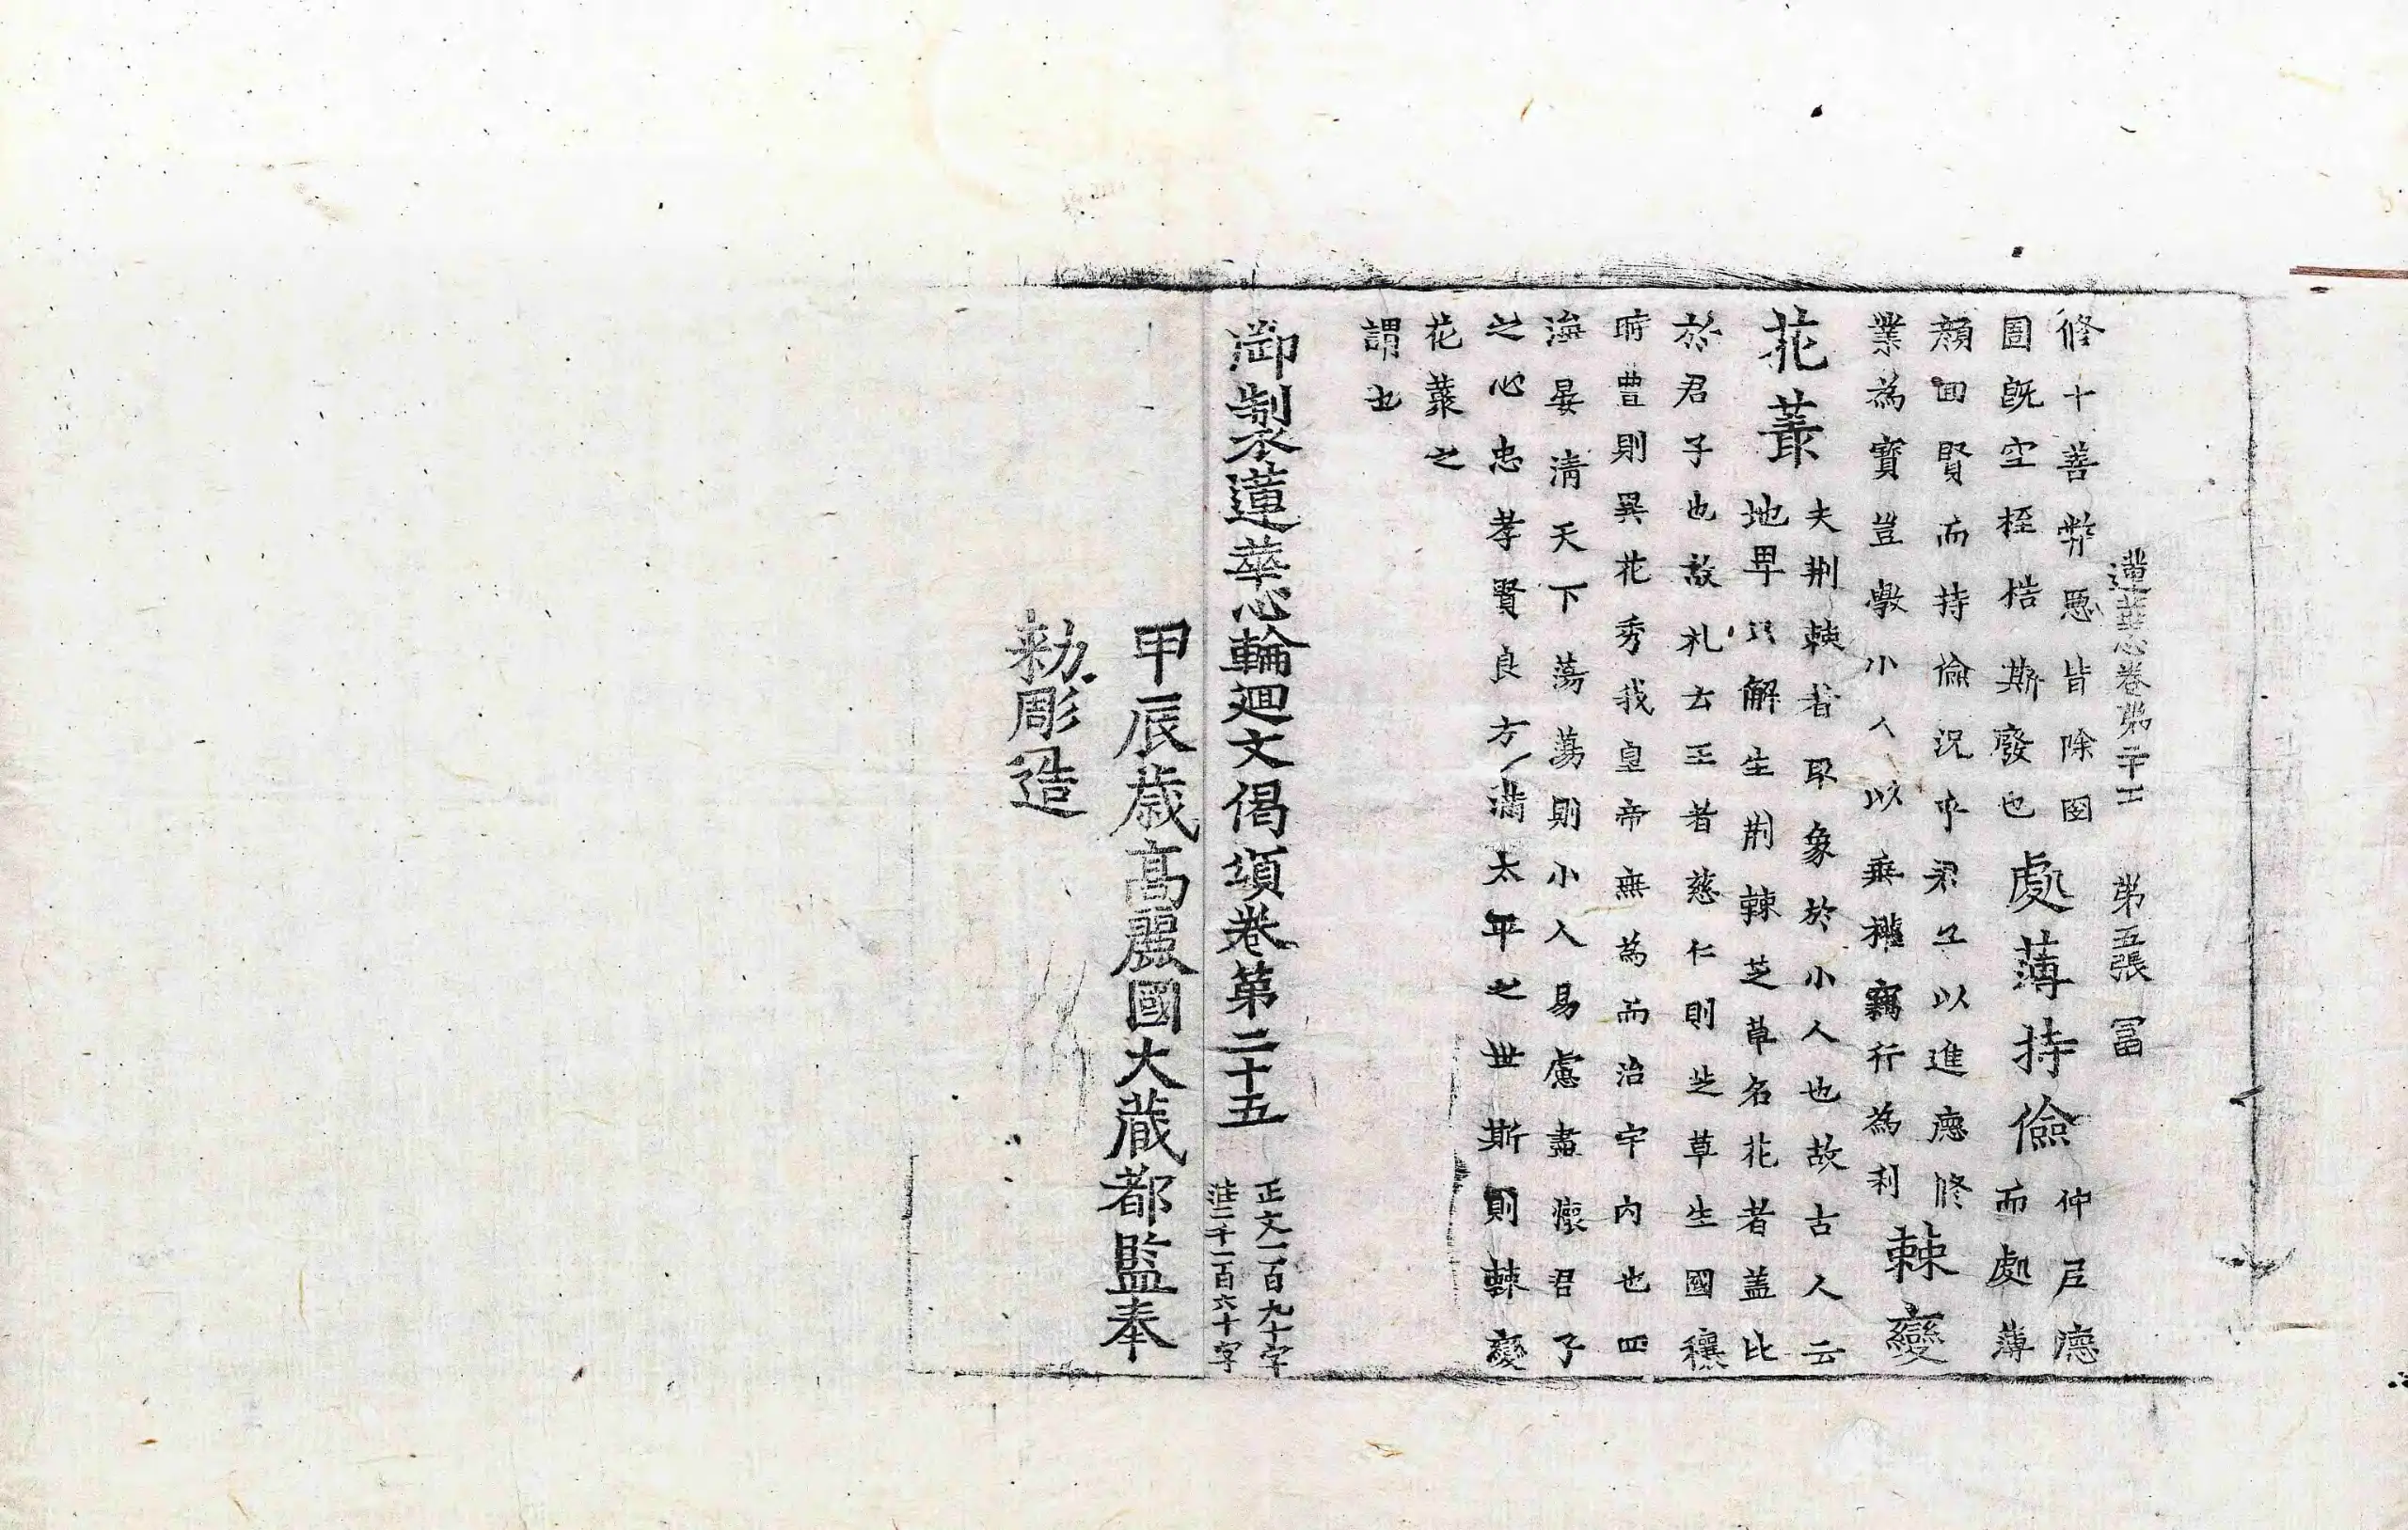 蓮華心卷第二十五　第五張　冨
修十善弊惡皆除囹仲尼德
圄旣空桎梏斯廢也處薄持儉而處薄
顔回賢而持儉況乎君子以進德修
業為寳豈學小人以乗權竊行為利棘變
花叢夫荆棘者取象於小人也故古人云
地卑只解生荆棘芝草名花者盖比
於君子也故礼云王者慈仁則芝草生國穰
時豊則異花秀我皇帝無為而治宇内也四
海晏清天下蕩蕩則小人易慮盡懷君子
之心忠孝賢良方滿太平之世斯則棘變
花叢之
謂也
御製蓮華心輪廻文偈頌卷第二十五　正文一百九十字
注二千一百六十字
甲辰歳髙麗國大藏都監奉
勅彫造